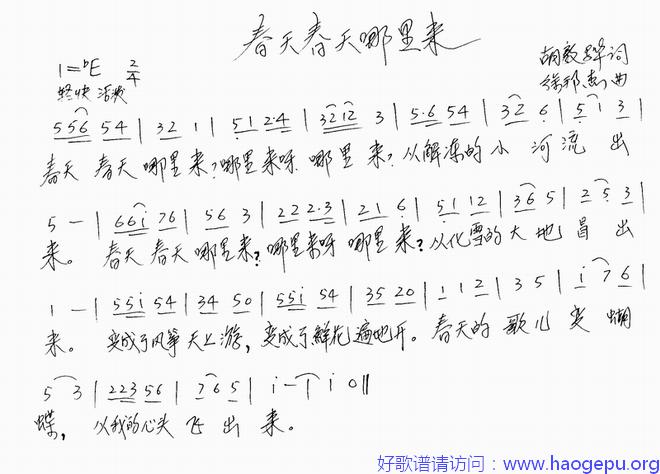 春天春天哪里来
1=♭E 2/4
胡敦骅词
稍快 活泼
徐邦杰曲
556 54 | 32 1 | 51 2·4 | 3212 3 | 5·6 54 | 32 6 | 5 1 3 |
春天 春天 哪里来?哪里来呀 哪里来?从解冻的小河流出
5 — | 66i 76 | 56 3 | 222·3 | 21 6 | 51 12 | 36 5 | 2 5 3 |
来。 春天 春天 哪里来?哪里来呀 哪里来?从化雪的大地冒出
1 — | 55i 54 | 34 50 | 55i 54 | 35 20 | 1 1 2 | 3 5 | i 7 6 |
来。 变成了风筝天上游,变成了鲜花遍地开。春天的歌儿变蝴
5 3 | 223 56 | 7 6 5 | i — | i 0 ‖
蝶,从我的心头飞出来。
好歌谱请访问:www.haogepu.org